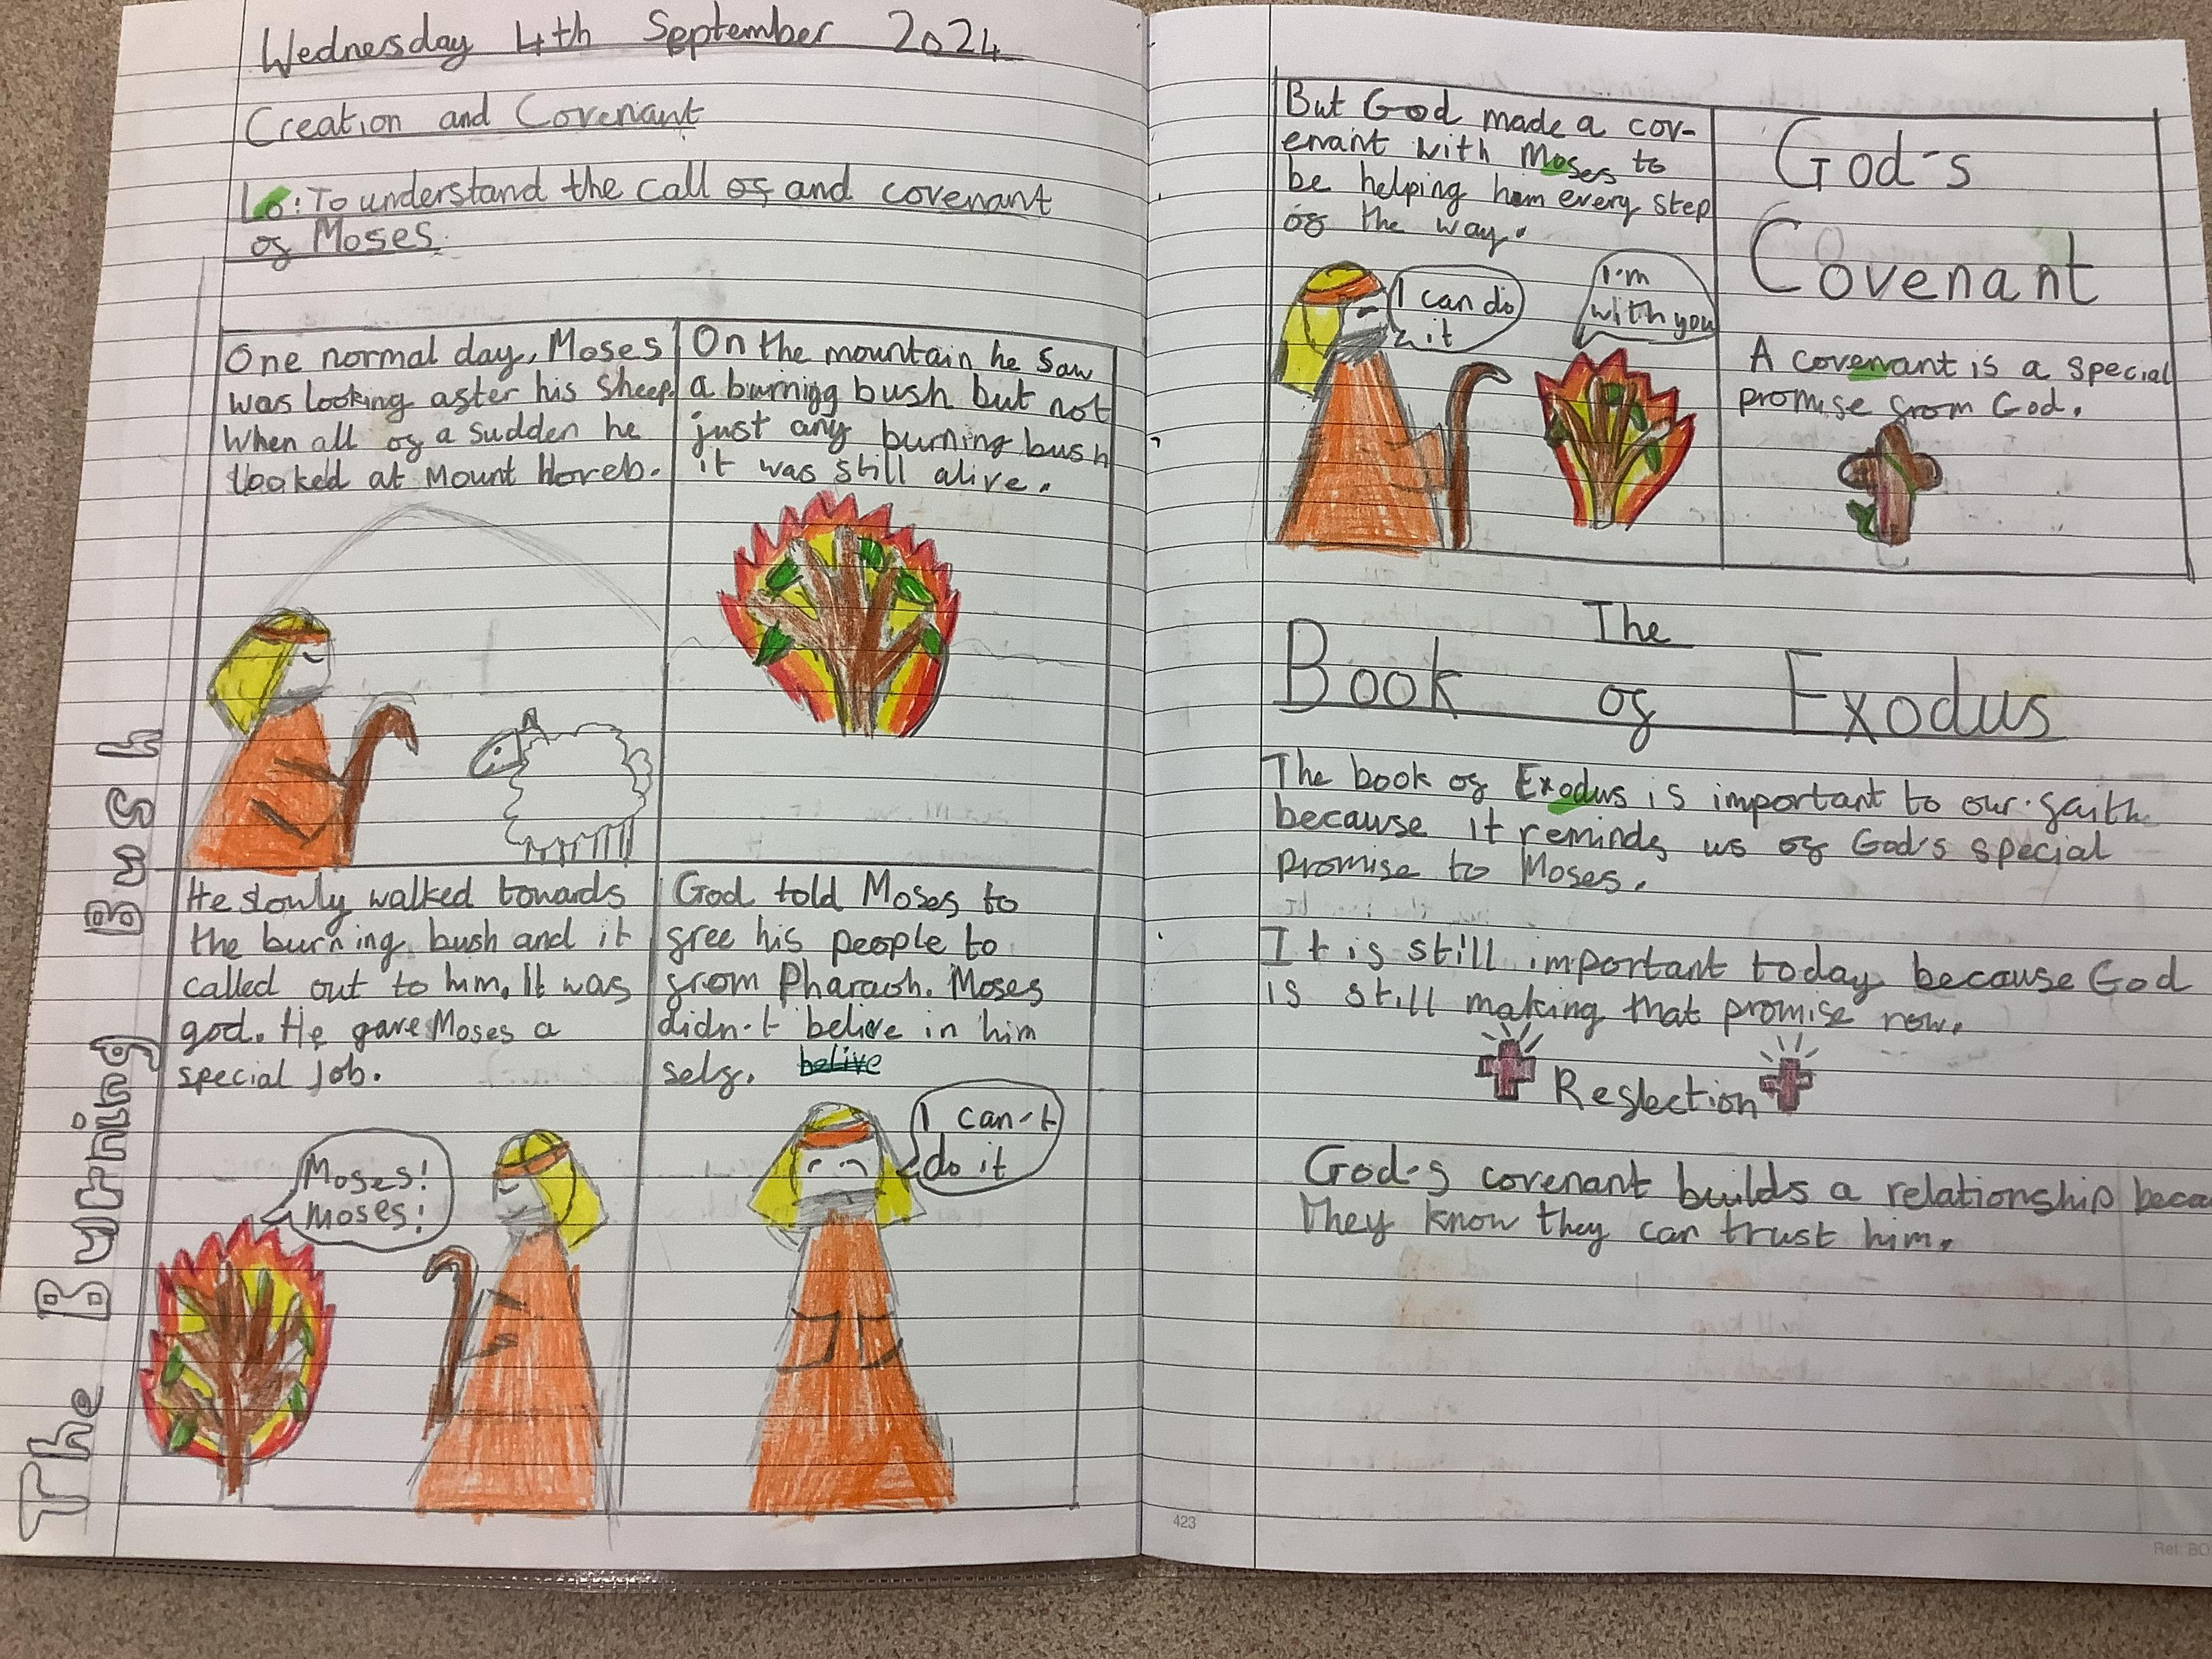 Wednesday 4th September 2024
Creation and Covenant
LO: To understand the call of and covenant
of Moses.
The Burning Bush
One normal day, Moses
was looking after his sheep.
When all of a sudden he
looked at Mount Horeb.
On the mountain he saw
a burnigg bush but not
just any burning bush
it was still alive.
He slowly walked towards
the burning bush and it
called out to him. It was
god. He gave Moses a
special job.
Moses!
Moses!
God told Moses to
free his people to
from Pharaoh. Moses
didn't belive in him
self. belive
I can't
do it
But God made a cov-
enant with Moses to
be helping him every step
of the way.
I can do
it
I'm
with you
God's
Covenant
A covenant is a special
promise from God.
The
Book of Exodus
The book of Exodus is important to our faith
because it reminds us of God's special
promise to Moses.
It is still important today because God
is still making that promise now.
Reflection
God's covenant builds a relationship beca
They know they can trust him.
423
Ref: BO